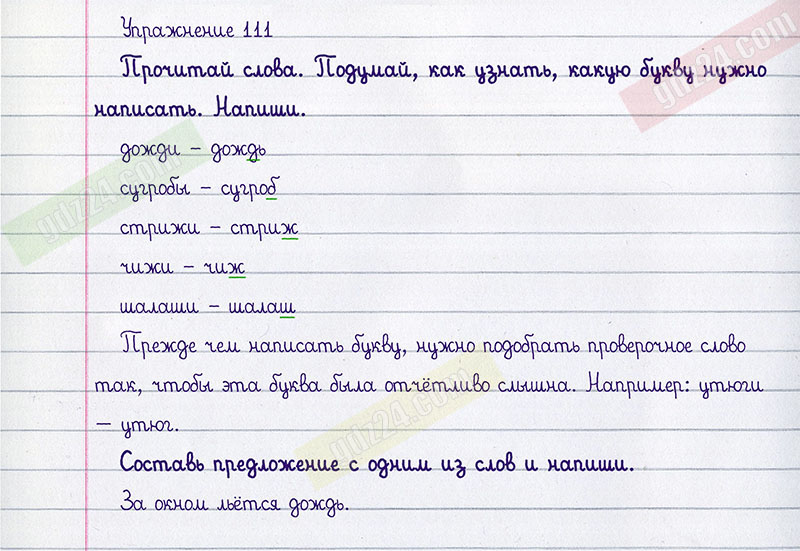 Упражнение 111
Прочитай слова. Подумай, как узнать, какую букву нужно
написать. Напиши.
дожди – дождь
сугробы – сугроб
стрижи – стриж
чижи – чиж
шалаши – шалаш
Прежде чем написать букву, нужно подобрать проверочное слово
так, чтобы эта буква была отчётливо слышна. Например: утюги
– утюг.
Составь предложение с одним из слов и напиши.
За окном льётся дождь.
gdz24.com
gdz24.com
gdz24.com